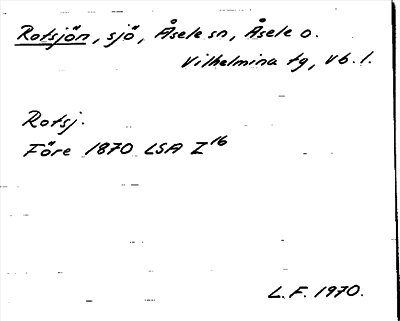 Rotsjön, sjö, Åsele sn, Åsele o.
Vilhelmina tg, Vb. l.
Rotsj.
Före 1870 LSA Z16
L.F. 1970.